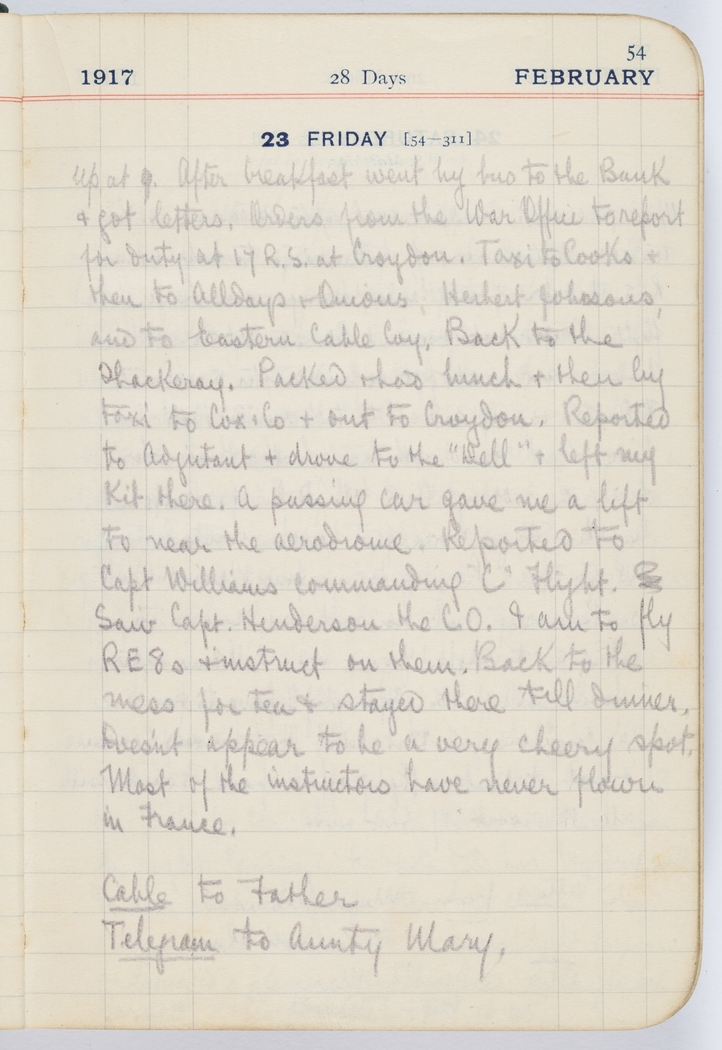 54
1917 28 Days FEBRUARY
23 FRIDAY [54-311]
Up at 9. After breakfast went by bus to the Bank
& got letters. Orders from the War Office to report
for duty at 17 R.S. at Croydon. Taxi to Cooks &
then to Alldays & Onions, Herbert Johnsons,
and to Eastern Cable Coy. Back to the
Thackeray. Packed & had lunch & then by
taxi to Cox & Co & out to Croydon. Reported
to Adjutant & drove to the "Dell" & left my
Kit there. A passing car gave me a lift
to near the aerodrome. Reported to
Capt Williams commanding "C" Flight.
Saw Capt. Henderson the C.O. I am to fly
RE8s & instruct on them. Back to the
mess for tea & stayed there till dinner.
Doesn't appear to be a very cheery spot.
Most of the instructors have never flown
in France.
Cable to Father
Telegram to Aunty Mary.